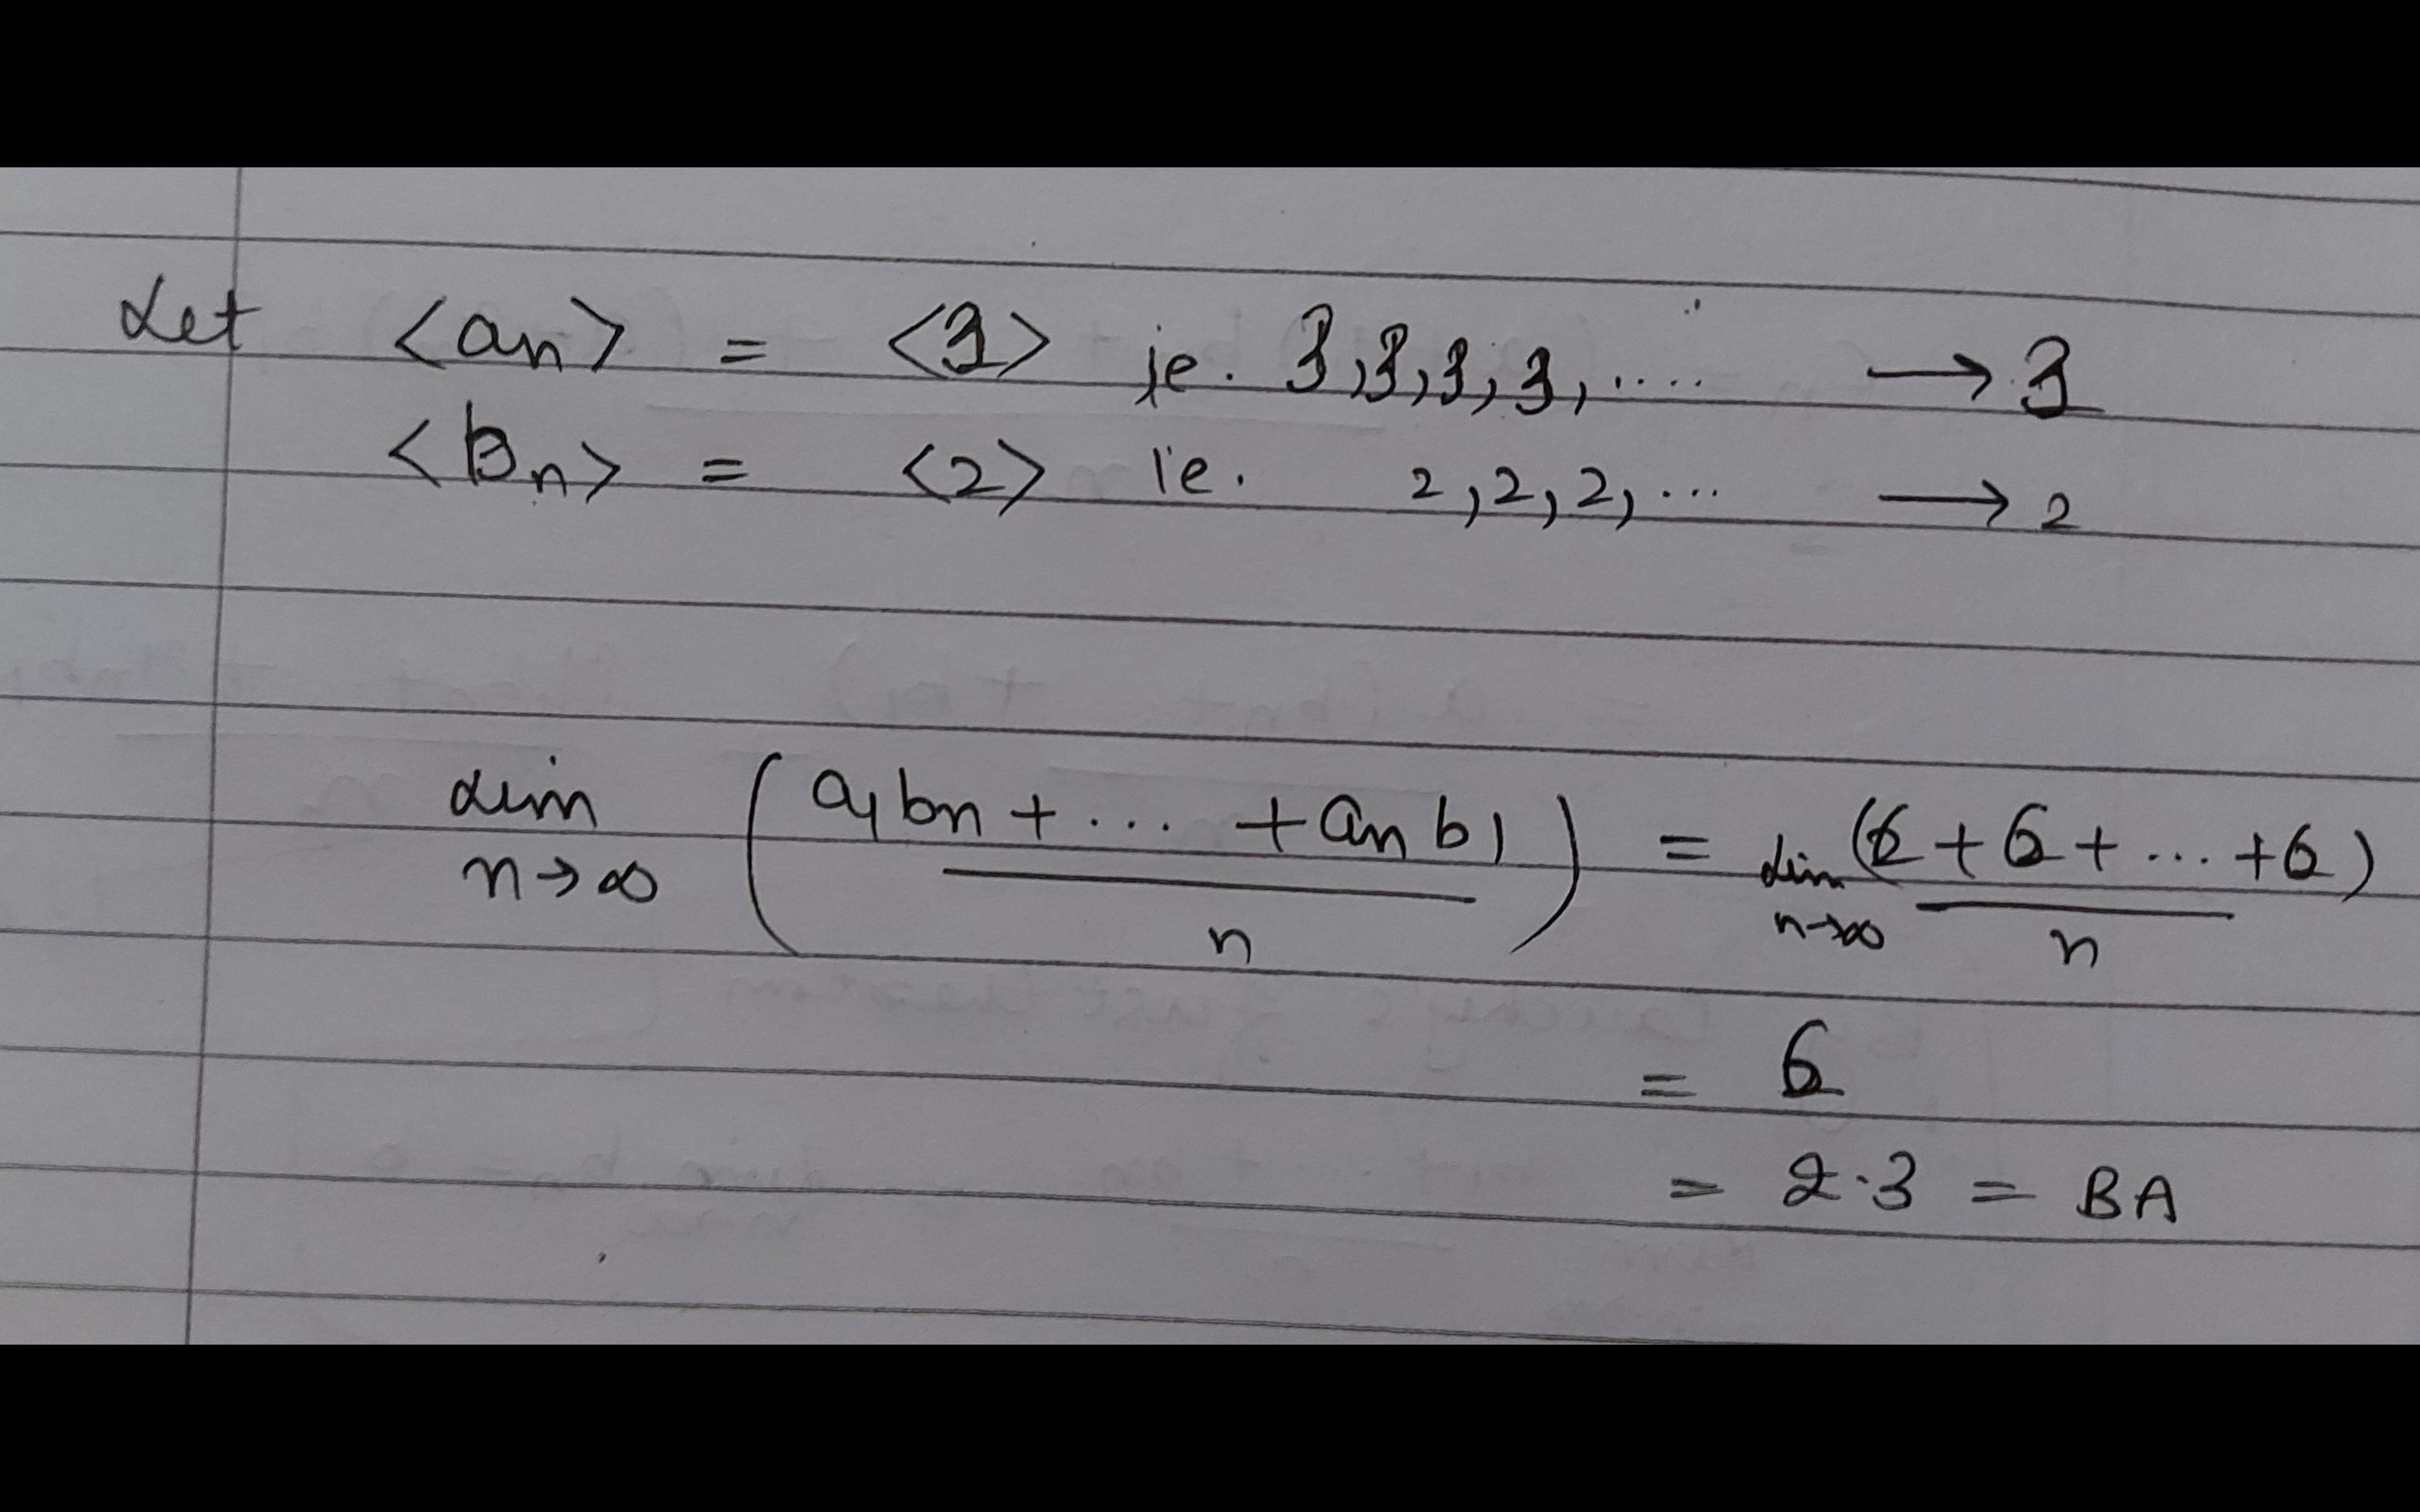 Let <an> = <3> ie. 3,3,3,3,.... → 3
<bn> = <2> ie. 2,2,2,... → 2
lim n→∞ (a1bn + ... + anb1 / n) = lim n→∞ (6+6+...+6) / n
= 6
= 2·3 = BA